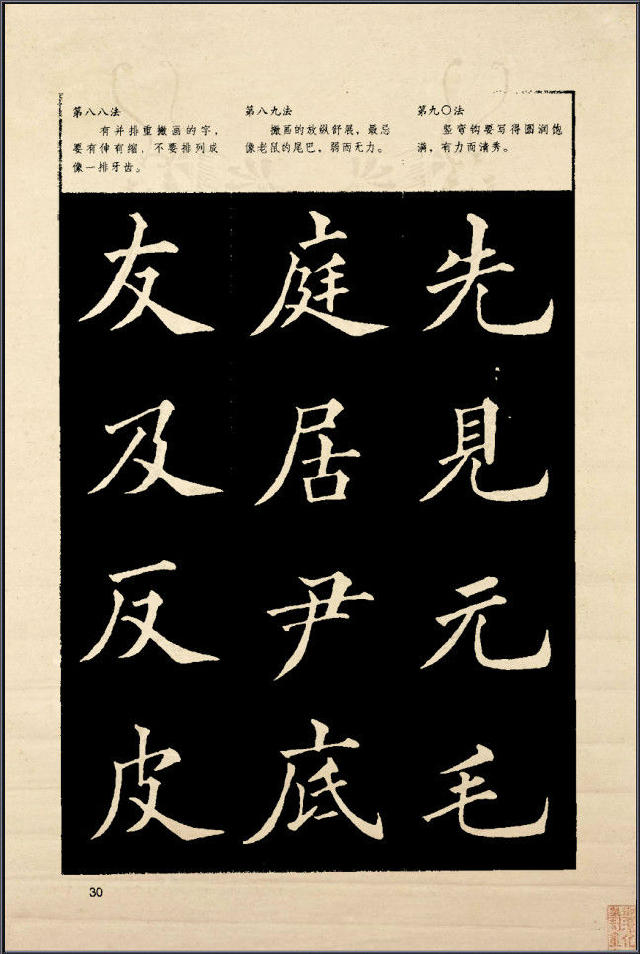 第八八法
有并排重撇画的字，
要有伸有缩，不要排列成
像一排牙齿。
第八九法
撇画的放纵舒展，最忌
像老鼠的尾巴，弱而无力。
第九〇法
竖弯钩要写得圆润饱
满，有力而清秀。
友
及
反
皮
庭
居
尹
底
先
見
元
毛
30